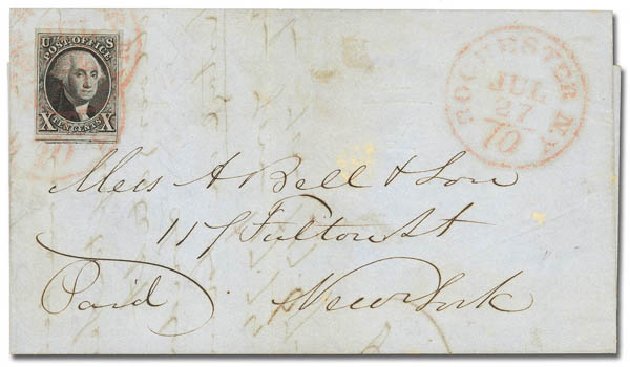 U S
POST OFFICE
X TEN CENTS X
ROCHESTER N.Y.
JUL
27
10
Mess A Bell & Son
117 Fulton St
Paid New York